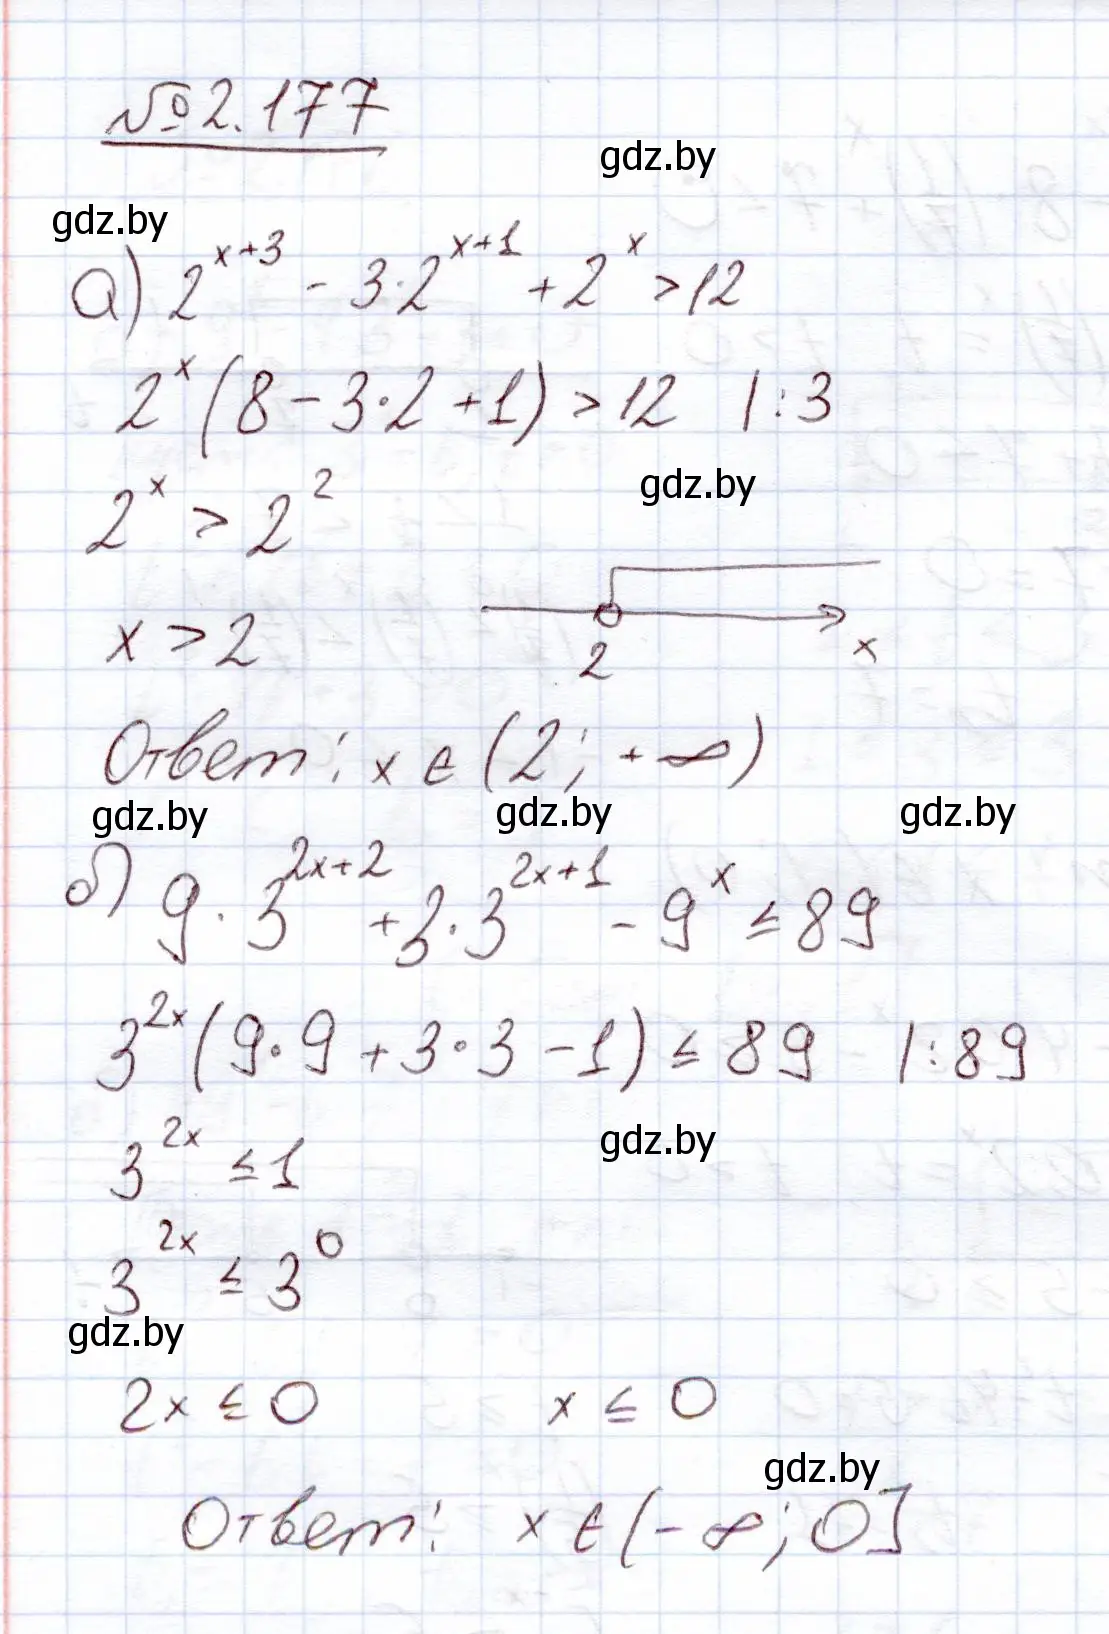 №2.177
gdz.by
gdz.by
а) 2^{x+3} - 3·2^{x+1} + 2^x > 12
2^x (8 - 3·2 + 1) > 12 |:3
gdz.by
2^x > 2^2
x > 2
2 x
Ответ: x ∈ (2; +∞)
gdz.by gdz.by gdz.by
б) 9·3^{2x+2} + 3·3^{2x+1} - 9^x ≤ 89
3^{2x} (9·9 + 3·3 - 1) ≤ 89 |:89
gdz.by
3^{2x} ≤ 1
3^{2x} ≤ 3^0
gdz.by
2x ≤ 0 x ≤ 0
gdz.by
Ответ: x ∈ (-∞; 0]